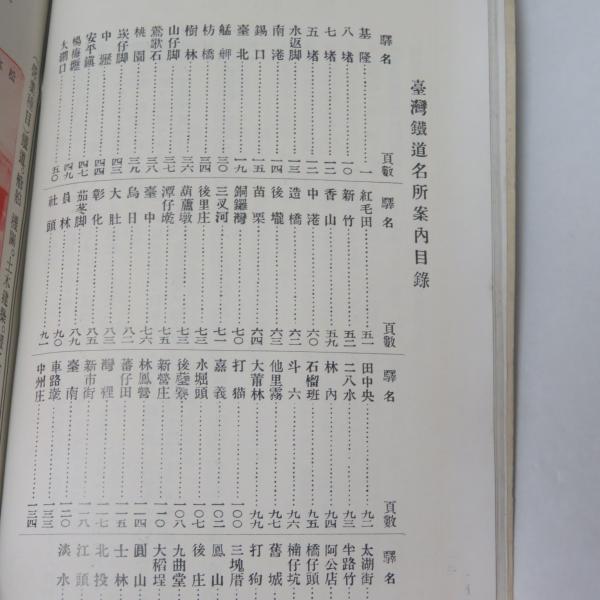 臺灣鐵道名所案內目錄
驛名 頁數
基隆 一
八堵 一〇
七堵 一二
五堵 一二
水返脚 一三
南港 一四
錫口 一五
臺北 一九
艋舺 三〇
枋橋 三四
樹林 三六
山仔脚 三七
鶯歌石 三八
桃園 三九
崁仔脚 四三
中壢 四四
安平鎮 四七
楊梅壢 四九
大湖口 五〇
驛名 頁數
紅毛田 五一
新竹 五二
香山 五九
中港 六〇
造橋 六二
後壠 六三
苗栗 六四
銅鑼灣 六四
三叉河 七〇
後里庄 七一
葫蘆墩 七三
潭仔墘 七五
臺中 七六
烏日 八一
大肚 八二
彰化 八三
茄苳脚 八五
員林 八九
社頭 九〇
九一
驛名 頁數
田中央 九二
二八水 九三
林內 九四
石榴班 九五
斗六 九六
他里霧 九七
大莆林 九九
打猫 一〇〇
嘉義 一〇二
水堀頭 一〇七
後壁寮 一〇八
新營庄 一一〇
林鳳營 一一四
蕃仔田 一一五
灣裡 一一七
新市街 一一八
臺南 一二〇
車路墘 一三三
中州庄 一三四
驛名
太湖街
半路竹
阿公店
橋仔頭
楠仔坑
舊城
打狗
三塊厝
鳳山
後庄
九曲堂
大稻埕
圓山
士林
北投
江頭
淡水